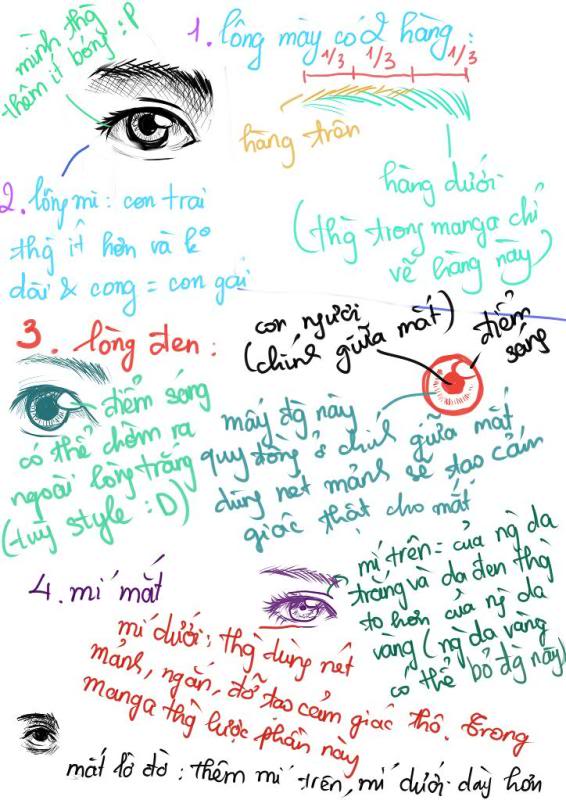 mình thg
thêm ít bóng :P
1. lông mày có 2 hàng:
1/3 1/3 1/3
hàng trên
hàng dưới
(thg trong manga chỉ
vẽ hàng này)
2. lông mi: con trai
thg ít hơn và ko
dài & cong = con gái
3. lòng đen:
điểm sáng
có thể chờm ra
ngoài lòng trắng
(tuỳ style :D)
con ngươi
(chính giữa mắt)
điểm
sáng
mấy đg này
quy đồng ở chính giữa mắt
dùng nét mảnh sẽ tạo cảm
giác thật cho mắt
4. mí mắt
mí trên = của ng da
trắng và da đen thg
to hơn của ng da
vàng (ng da vàng
có thể bỏ đg này)
mí dưới: thg dùng nét
mảnh, ngắn, đỡ tạo cảm giác thô. Trong
manga thg lược phần này
mắt lờ đờ: thêm mí trên, mí dưới dày hơn